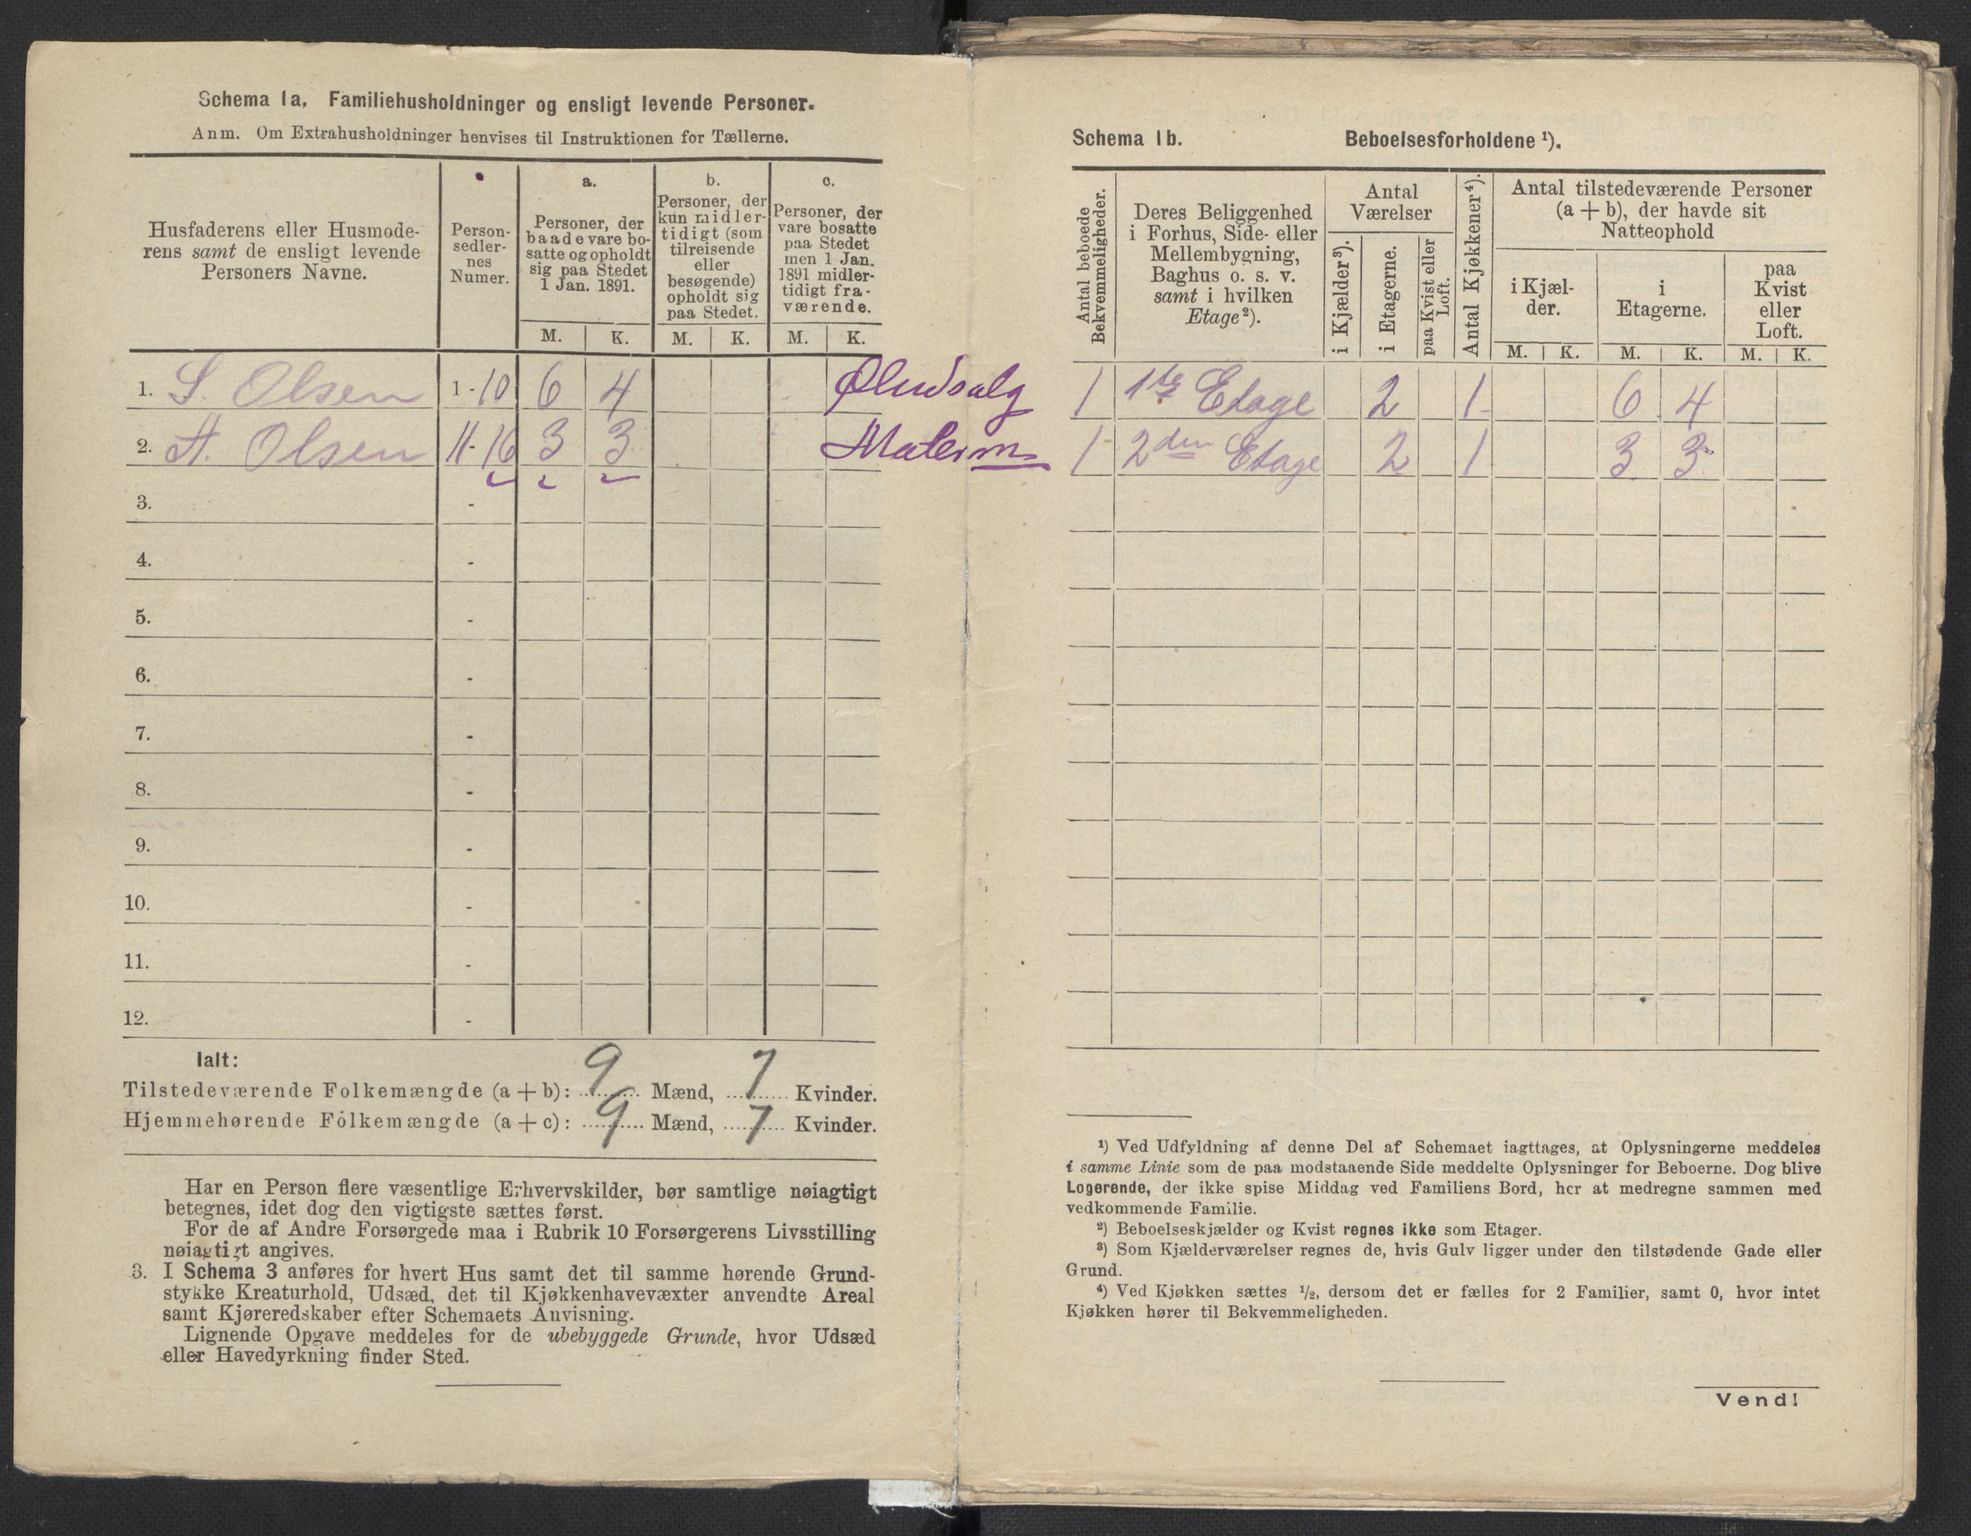 Schema 1a. Familiehusholdninger og ensligt levende Personer.
Anm. Om Extrahusholdninger henvises til Instruktionen for Tællerne.
Husfaderens eller Husmode-
rens samt de ensligt levende
Personers Navne.
Person-
sedler-
nes
Numer.
a.
Personer, der
baade vare bo-
satte og opholdt
sig paa Stedet
1 Jan. 1891.
b.
Personer, der
kun midler-
tidigt (som
tilreisende
eller
besøgende)
opholdt sig
paa Stedet.
c.
Personer, der
vare bosatte
paa Stedet
men 1 Jan.
1891 midler-
tidigt fra-
værende.
M. K. M. K. M. K.
1. S. Olsen 1-10 6 4 Øludsalg
2. A. Olsen 11-16 3 3 Malerm
3. -
4. -
5. -
6. -
7. -
8. -
9. -
10. -
11. -
12. -
Ialt:
Tilstedeværende Folkemængde (a + b): 9 Mænd, 7 Kvinder.
Hjemmehørende Folkemængde (a + c): 9 Mænd, 7 Kvinder.
Har en Person flere væsentlige Erhvervskilder, bør samtlige nøiagtigt
betegnes, idet dog den vigtigste sættes først.
For de af Andre Forsørgede maa i Rubrik 10 Forsørgerens Livsstilling
nøiagtigt angives.
3. I Schema 3 anføres for hvert Hus samt det til samme hørende Grund-
stykke Kreaturhold, Udsæd, det til Kjøkkenhavevæxter anvendte Areal
samt Kjøreredskaber efter Schemaets Anvisning.
Lignende Opgave meddeles for de ubebyggede Grunde, hvor Udsæd
eller Havedyrkning finder Sted.
Schema 1b. Beboelsesforholdene ¹).
Antal beboede
Bekvemmeligheder.
Deres Beliggenhed
i Forhus, Side- eller
Mellembygning,
Baghus o. s. v.
samt i hvilken
Etage²).
Antal
Værelser
i Kjælder³).
i Etagerne.
paa Kvist eller
Loft.
Antal Kjøkkener⁴).
Antal tilstedeværende Personer
(a + b), der havde sit
Natteophold
i Kjæl-
der.
i
Etagerne.
paa
Kvist
eller
Loft.
M. K. M. K. M. K.
1 1ste Etage 2 1 6 4
1 2den Etage 2 1 3 3
¹) Ved Udfyldning af denne Del af Schemaet iagttages, at Oplysningerne meddeles
i samme Linie som de paa modstaaende Side meddelte Oplysninger for Beboerne. Dog blive
Logerende, der ikke spise Middag ved Familiens Bord, her at medregne sammen med
vedkommende Familie.
²) Beboelseskjælder og Kvist regnes ikke som Etager.
³) Som Kjælderværelser regnes de, hvis Gulv ligger under den tilstødende Gade eller
Grund.
⁴) Ved Kjøkken sættes ½, dersom det er fælles for 2 Familier, samt 0, hvor intet
Kjøkken hører til Bekvemmeligheden.
Vend!